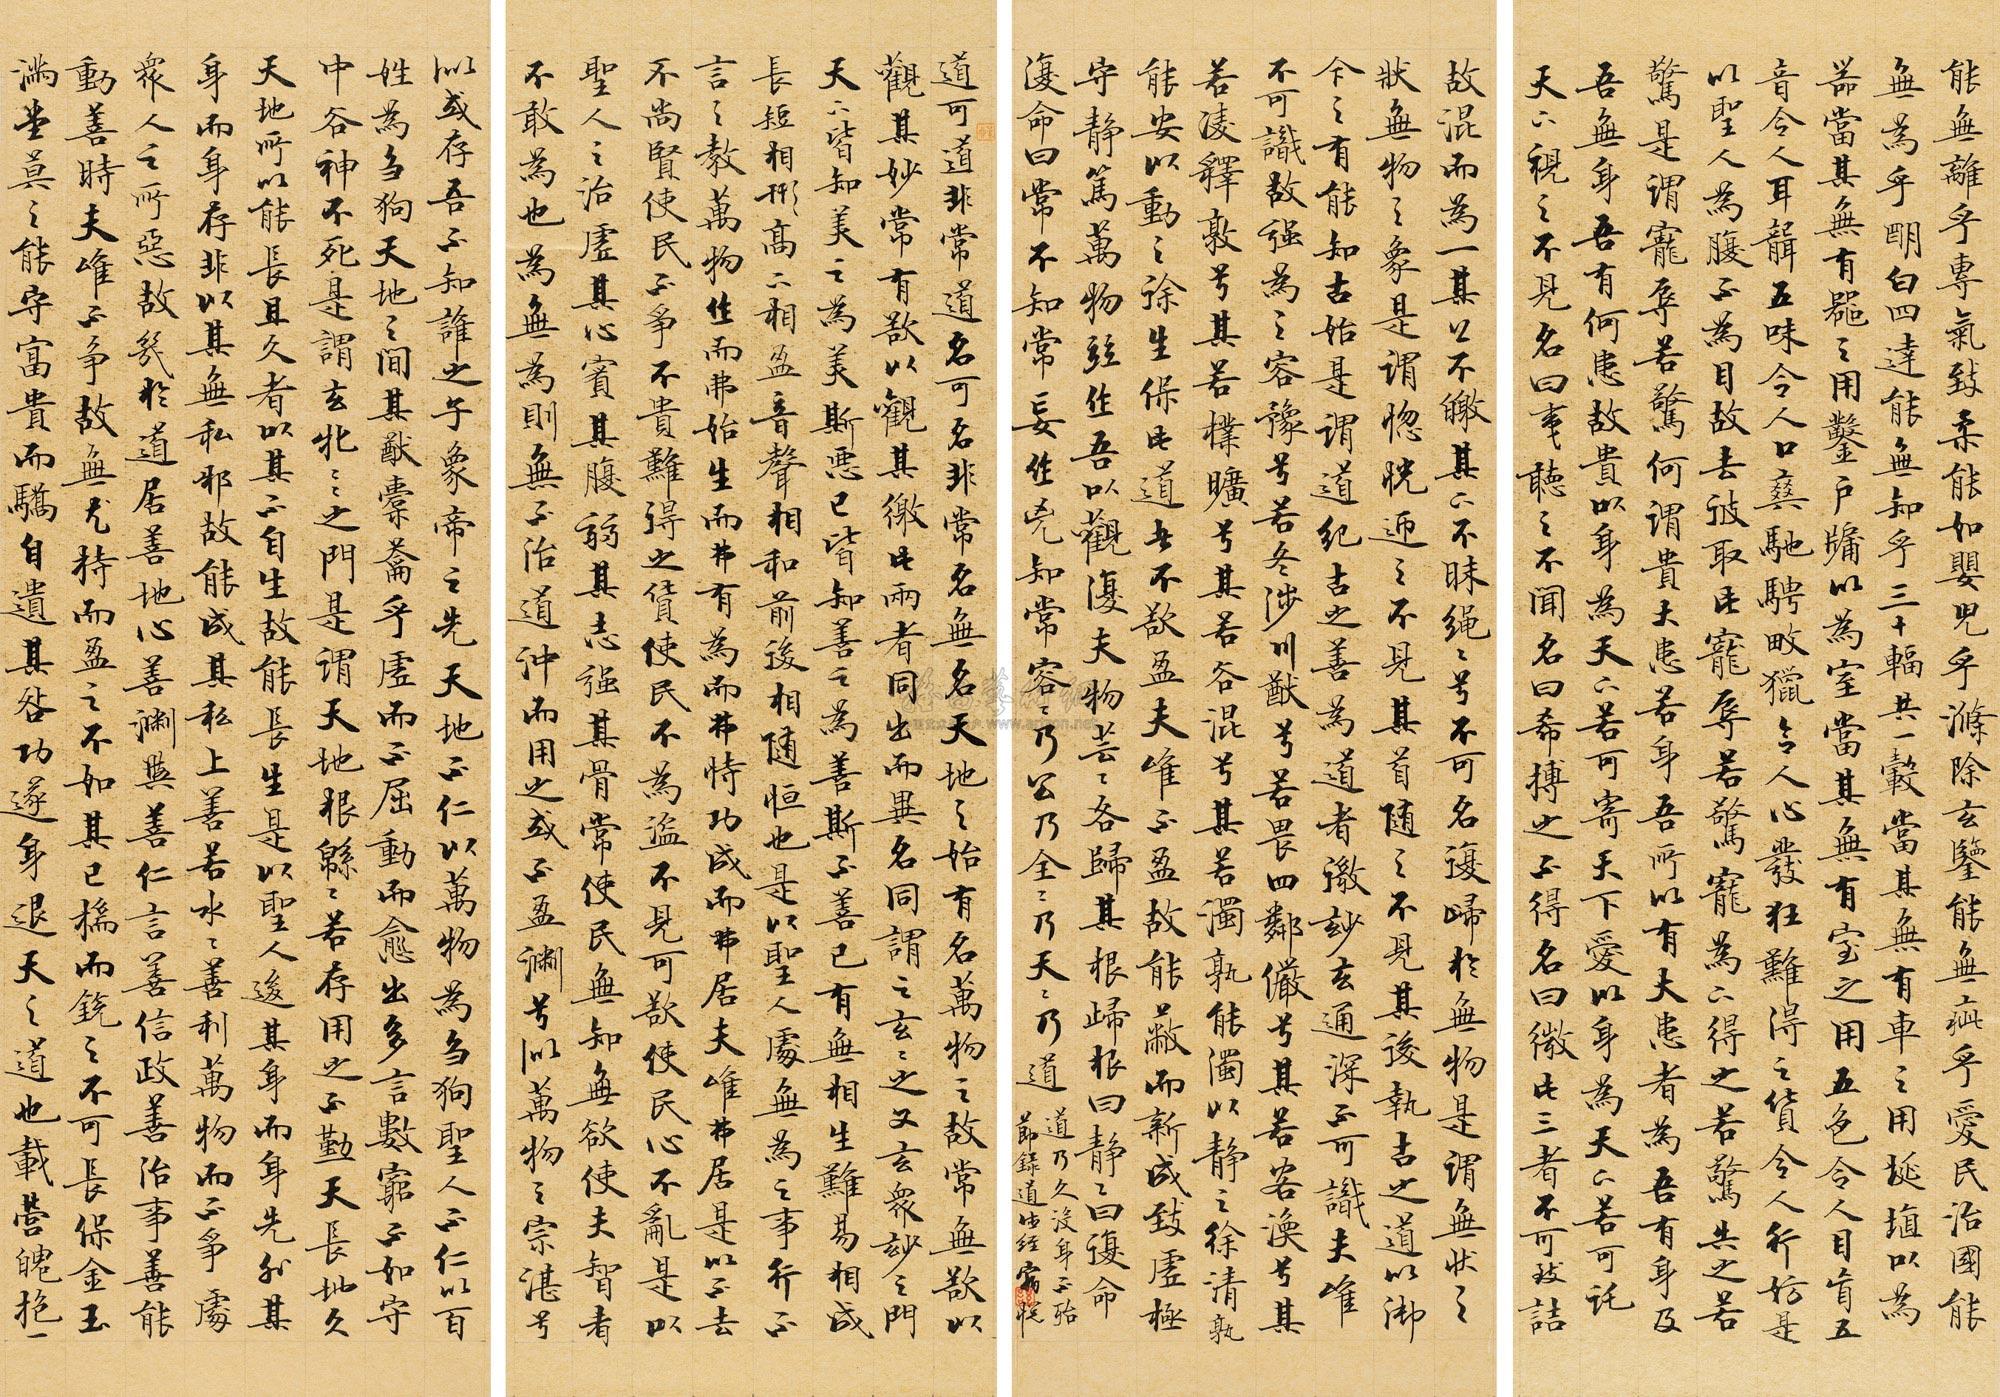 道可道非常道名可名非常名無名天地之始有名萬物之故常無欲以
觀其妙常有欲以觀其徼此兩者同出而異名同謂之玄〻之又玄衆玅之門
天下皆知美之為美斯惡已皆知善之為善斯不善已有無相生難易相成
長短相形高下相盈音聲相和前後相隨恒也是以聖人處無為之事行不
言之教萬物作而弗始生而弗有為而弗恃功成而弗居夫唯弗居是以不去
不尚賢使民不爭不貴難得之貨使民不為盜不見可欲使民心不亂是以
聖人之治虛其心實其腹弱其志强其骨常使民無知無欲使夫智者
不敢為也為無為則無不治道沖而用之或不盈淵兮似萬物之宗湛兮
似或存吾不知誰之子象帝之先天地不仁以萬物為芻狗聖人不仁以百
姓為芻狗天地之間其猷橐籥乎虛而不屈動而愈出多言數窮不如守
中谷神不死是謂玄牝〻之門是謂天地根緜〻若存用之不勤天長地久
天地所以能長且久者以其不自生故能長生是以聖人後其身而身先外其
身而身存非以其無私邪故能成其私上善若水〻善利萬物而不爭處
衆人之所惡故幾於道居善地心善淵與善仁言善信政善治事善能
動善時夫唯不争故無尤持而盈之不如其已揣而銳之不可長保金玉
滿堂莫之能守富貴而驕自遺其咎功遂身退天之道也載營魄抱一
能無離乎專氣致柔能如嬰兒乎滌除玄鑒能無疵乎愛民治國能
無為乎明白四達能無知乎三十輻共一轂當其無有車之用埏埴以為
器當其無有器之用鑿戶牖以為室當其無有室之用五色令人目盲五
音令人耳聾五味令人口爽馳騁畋獵令人心發狂難得之貨令人行妨是
以聖人為腹不為目故去彼取此寵辱若驚寵為下得之若驚失之若
驚是謂寵辱若驚何謂貴大患若身吾所以有大患者為吾有身及
吾無身吾有何患故貴以身為天下若可寄天下愛以身為天下若可託
天下視之不見名曰夷聽之不聞名曰希搏之不得名曰微此三者不可致詰
故混而為一其上不皦其下不昧繩〻兮不可名復歸於無物是謂無狀之
狀無物之象是謂惚恍迎之不見其首隨之不見其後執古之道以御
今之有能知古始是謂道紀古之善為道者微玅玄通深不可識夫唯
不可識故强為之容豫兮若冬涉川猷兮若畏四鄰儼兮其若客渙兮其
若凌釋敦兮其若樸曠兮其若谷混兮其若濁孰能濁以靜之徐清孰
能安以動之徐生保此道者不欲盈夫唯不盈故能蔽而新成致虛極
守静篤萬物並作吾以觀復夫物芸〻各歸其根歸根曰静〻曰復命
復命曰常不知常妄作兇知常容〻乃公乃全〻乃天〻乃道
道乃久沒身不殆
節錄道德經
www.artron.net